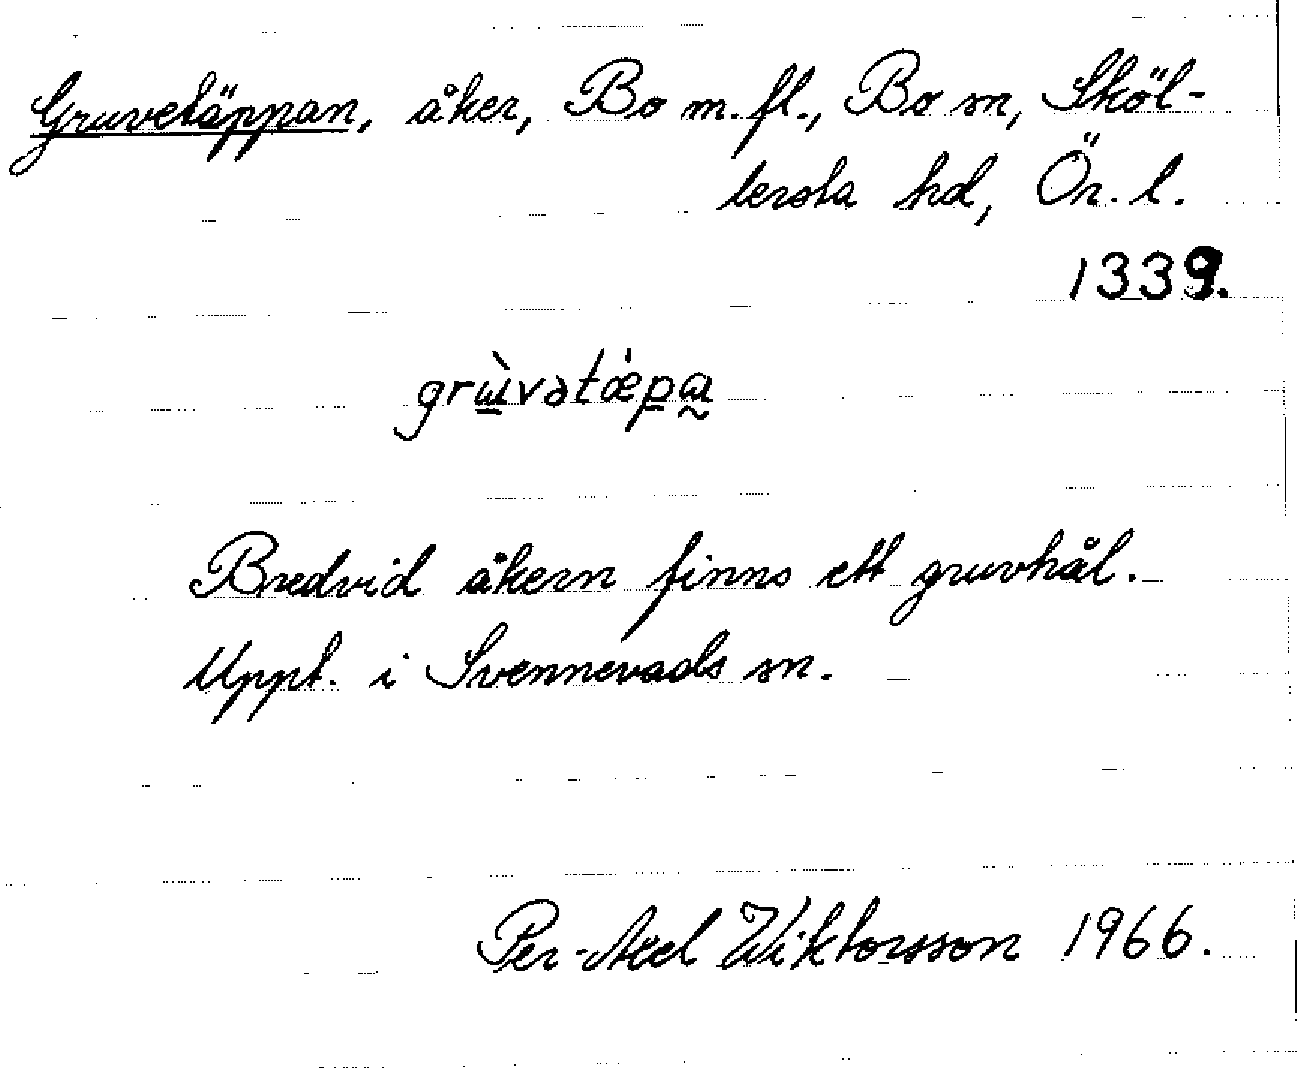 Gruvetäppan, åker, Bo m.fl., Bo sn, Sköl-
lersta hd, Ör. l.
1339.
grɯ̀vətœ́pa
Bredvid åkern finns ett gruvhål.
Uppt. i Svennevads sn.
Per-Axel Wiktorsson 1966.